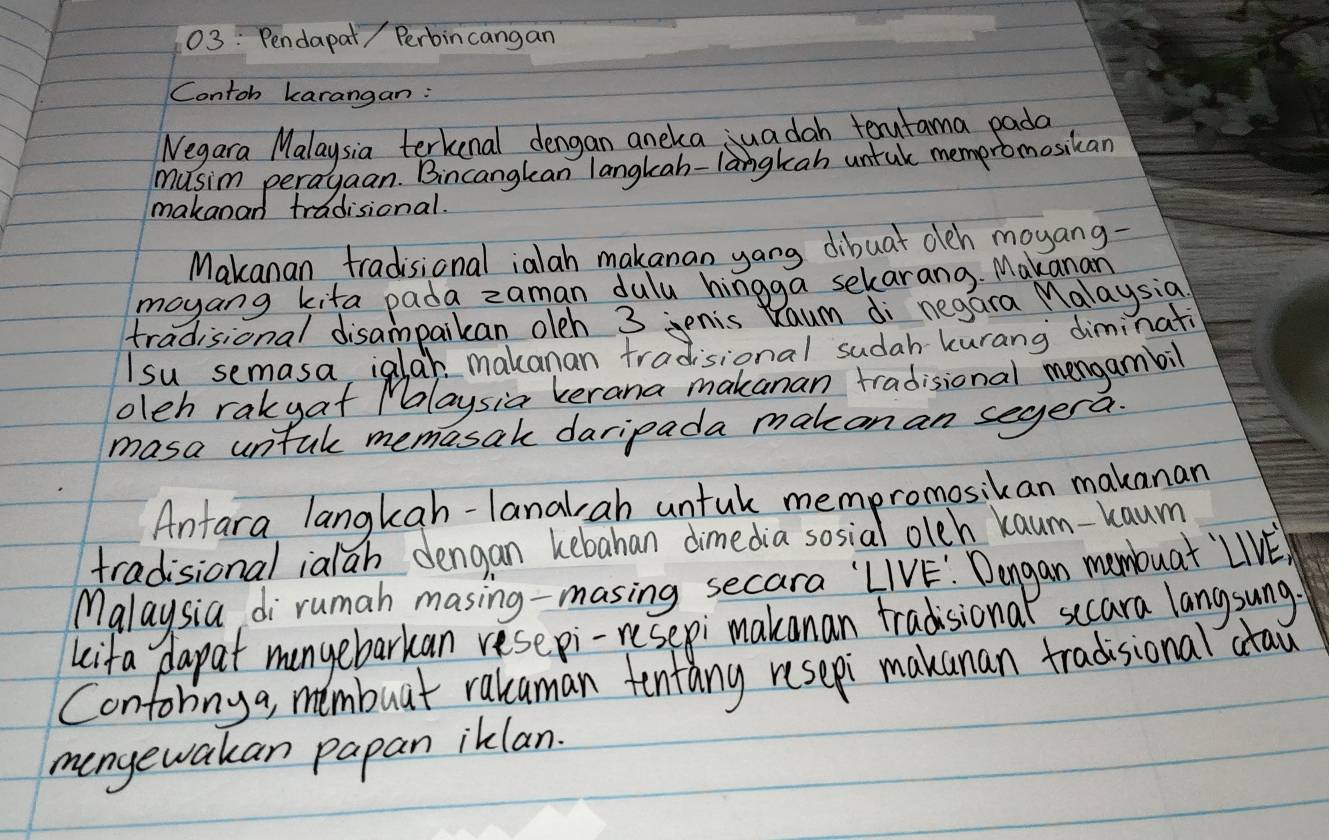 03: Pendapat/Perbincangan
Contoh karangan:
Negara Malaysia terkenal dengan aneka juadah terutama pada
musim perayaan. Bincangkan langkah-langkah untuk mempromosikan
makanan tradisional.
Makanan tradisional ialah makanan yang dibuat oleh moyang-
moyang kita pada zaman dulu hingga sekarang. Makanan
tradisional disampaikan oleh 3 jenis kaum di negara Malaysia.
Isu semasa ialah makanan tradisional sudah kurang diminati
oleh rakyat Malaysia kerana makanan tradisional mengambil
masa untuk memasak daripada makanan segera.
Antara langkah-langkah untuk mempromosikan makanan
tradisional ialah dengan kebahan dimedia sosial oleh kaum-kaum
Malaysia di rumah masing-masing secara 'LIVE'. Dengan membuat 'LIVE',
kita dapat menyebarkan resepi-resepi makanan tradisional secara langsung.
Contohnya, membuat rakaman tentang resepi makanan tradisional atau
menyewakan papan iklan.